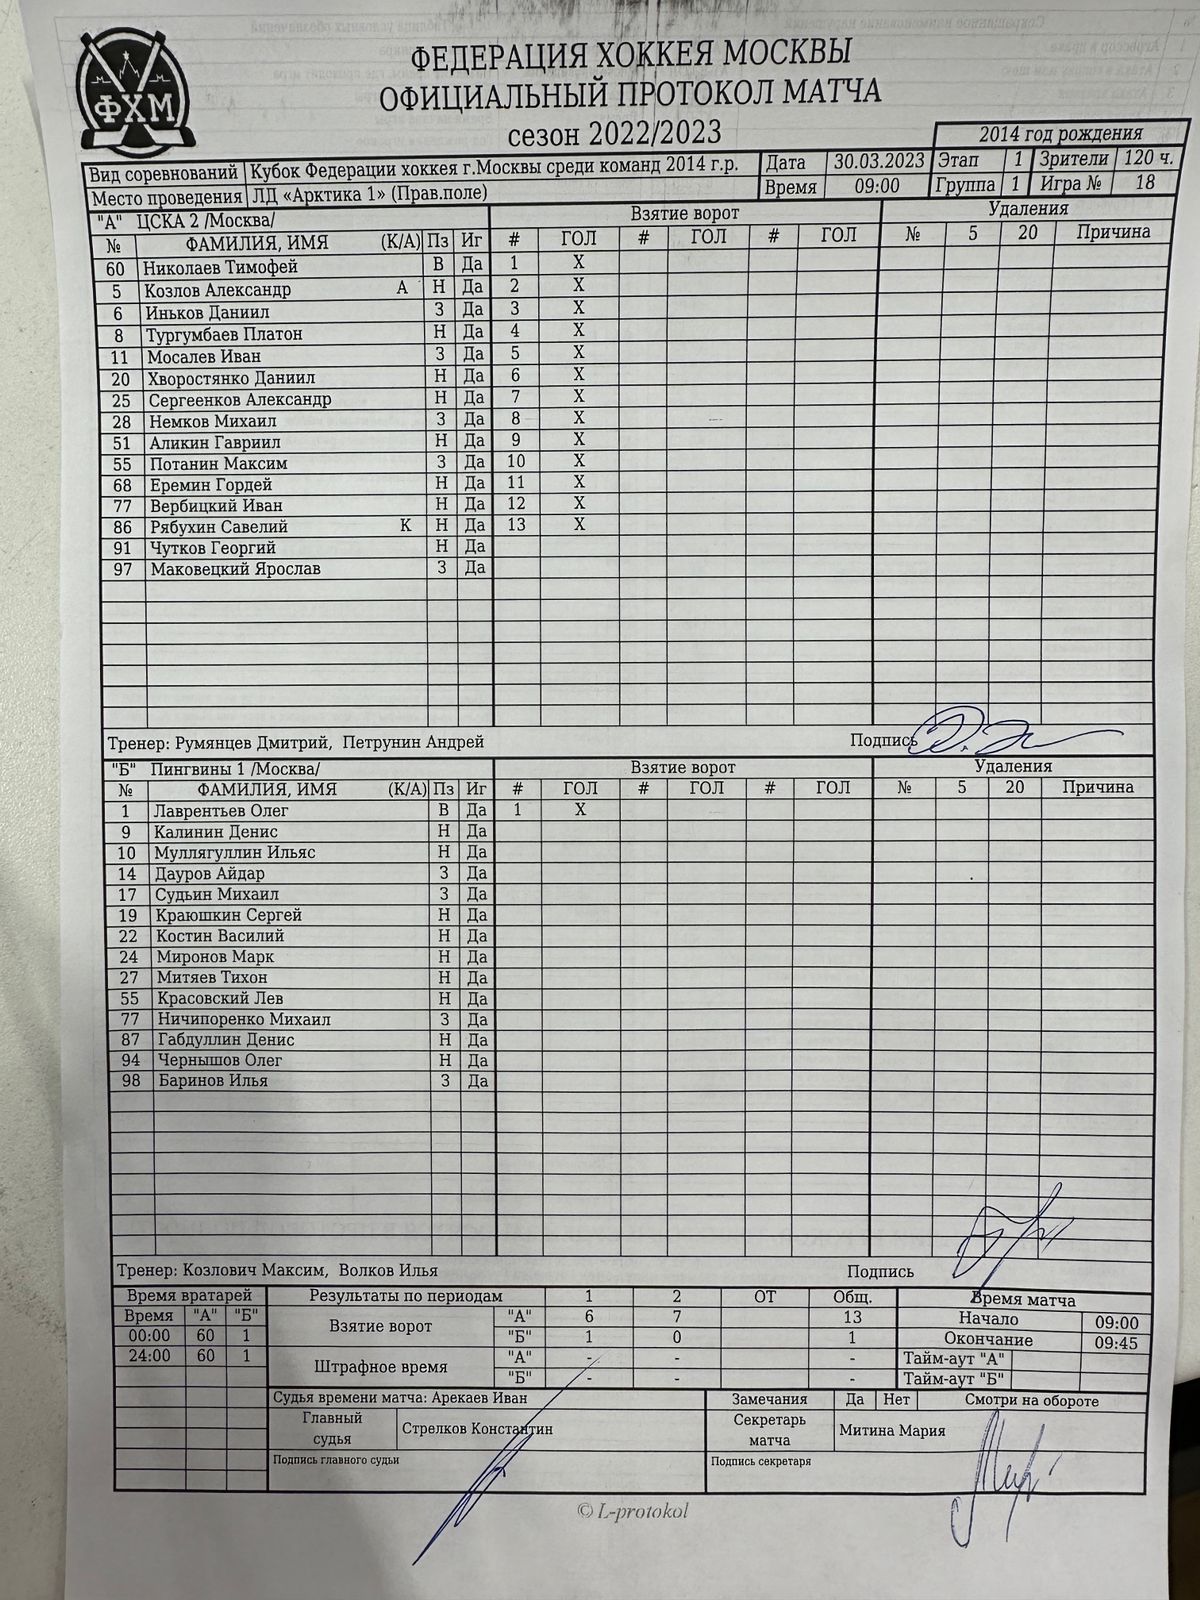 ФЕДЕРАЦИЯ ХОККЕЯ МОСКВЫ
ОФИЦИАЛЬНЫЙ ПРОТОКОЛ МАТЧА
сезон 2022/2023
ФХМ
2014 год рождения
Вид соревнований Кубок Федерации хоккея г.Москвы среди команд 2014 г.р. Дата 30.03.2023 Этап 1 Зрители 120 ч.
Место проведения ЛД «Арктика 1» (Прав.поле) Время 09:00 Группа 1 Игра № 18
"А" ЦСКА 2 /Москва/ Взятие ворот Удаления
№ ФАМИЛИЯ, ИМЯ (К/А) Пз Иг # ГОЛ # ГОЛ # ГОЛ № 5 20 Причина
60 Николаев Тимофей В Да 1 X
5 Козлов Александр А Н Да 2 X
6 Иньков Даниил З Да 3 X
8 Тургумбаев Платон Н Да 4 X
11 Мосалев Иван З Да 5 X
20 Хворостянко Даниил Н Да 6 X
25 Сергеенков Александр Н Да 7 X
28 Немков Михаил З Да 8 X
51 Аликин Гавриил Н Да 9 X
55 Потанин Максим З Да 10 X
68 Еремин Гордей Н Да 11 X
77 Вербицкий Иван Н Да 12 X
86 Рябухин Савелий К Н Да 13 X
91 Чутков Георгий Н Да
97 Маковецкий Ярослав З Да
Тренер: Румянцев Дмитрий, Петрунин Андрей Подпись
"Б" Пингвины 1 /Москва/ Взятие ворот Удаления
№ ФАМИЛИЯ, ИМЯ (К/А) Пз Иг # ГОЛ # ГОЛ # ГОЛ № 5 20 Причина
1 Лаврентьев Олег В Да 1 X
9 Калинин Денис Н Да
10 Муллягуллин Ильяс Н Да
14 Дауров Айдар З Да
17 Судьин Михаил З Да
19 Краюшкин Сергей Н Да
22 Костин Василий Н Да
24 Миронов Марк Н Да
27 Митяев Тихон Н Да
55 Красовский Лев Н Да
77 Ничипоренко Михаил З Да
87 Габдуллин Денис Н Да
94 Чернышов Олег Н Да
98 Баринов Илья З Да
Тренер: Козлович Максим, Волков Илья Подпись
Время вратарей Результаты по периодам 1 2 ОТ Общ. Время матча
Время "А" "Б" Взятие ворот "А" 6 7 13 Начало 09:00
00:00 60 1 "Б" 1 0 1 Окончание 09:45
24:00 60 1 Штрафное время "А" - - - Тайм-аут "А"
"Б" - - - Тайм-аут "Б"
Судья времени матча: Арекаев Иван Замечания Да Нет Смотри на обороте
Главный судья Стрелков Константин Секретарь матча Митина Мария
Подпись главного судьи Подпись секретаря
© L-protokol